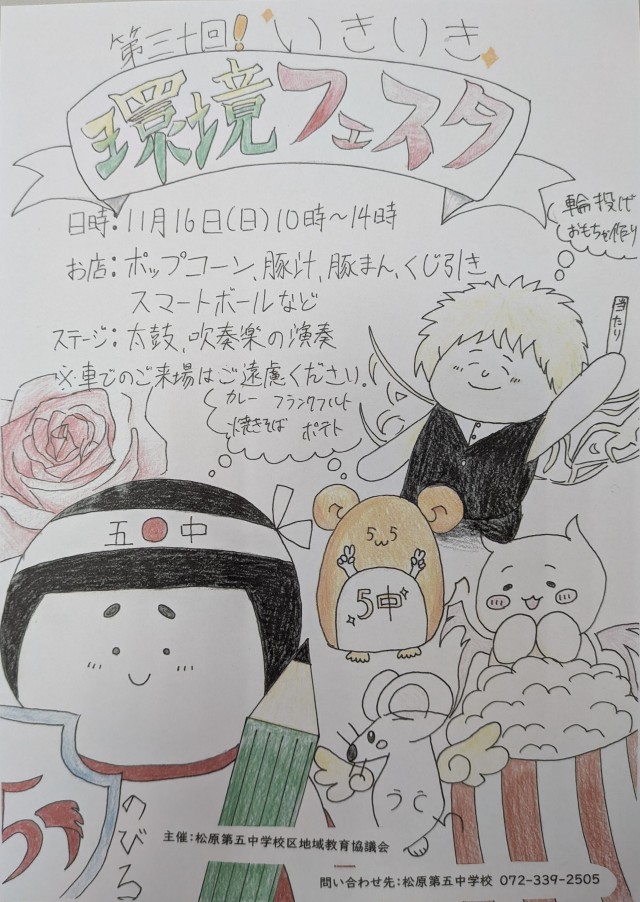 第三十回！いきいき
環境フェスタ
日時：11月16日(日)10時〜14時
お店：ポップコーン、豚汁、豚まん、くじ引き
スマートボールなど
ステージ：太鼓、吹奏楽の演奏
※車でのご来場はご遠慮ください。
輪投げ
おもちゃ作り
当たり
カレー フランクフルト
焼きそば ポテト
五 中
5中
のびる
主催：松原第五中学校区地域教育協議会
問い合わせ先：松原第五中学校 072-339-2505